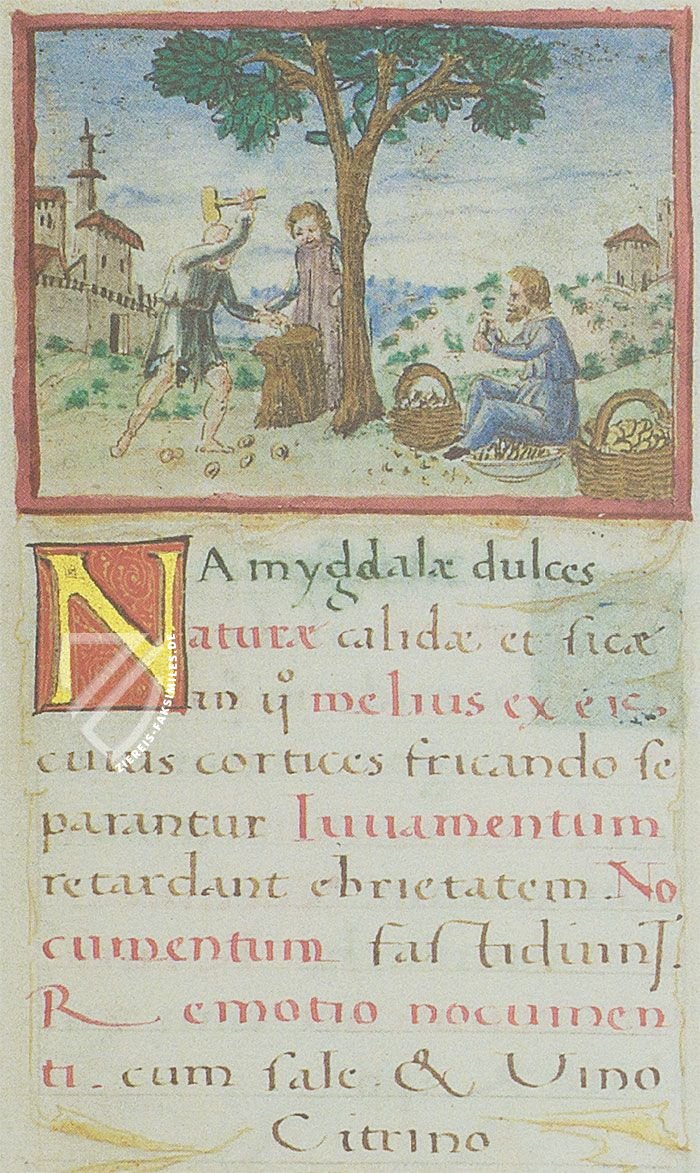 Amygdalæ dulces
Naturæ calidæ et sicæ
in ij° melius ex eis
cuius cortices fricando se
parantur Iuvamentum
retardant ebrietatem. No
cumentum fastidium.
Remotio nocumen
ti. cum sale. & Vino
Citrino
ZIEREIS-FAKSIMILES.DE